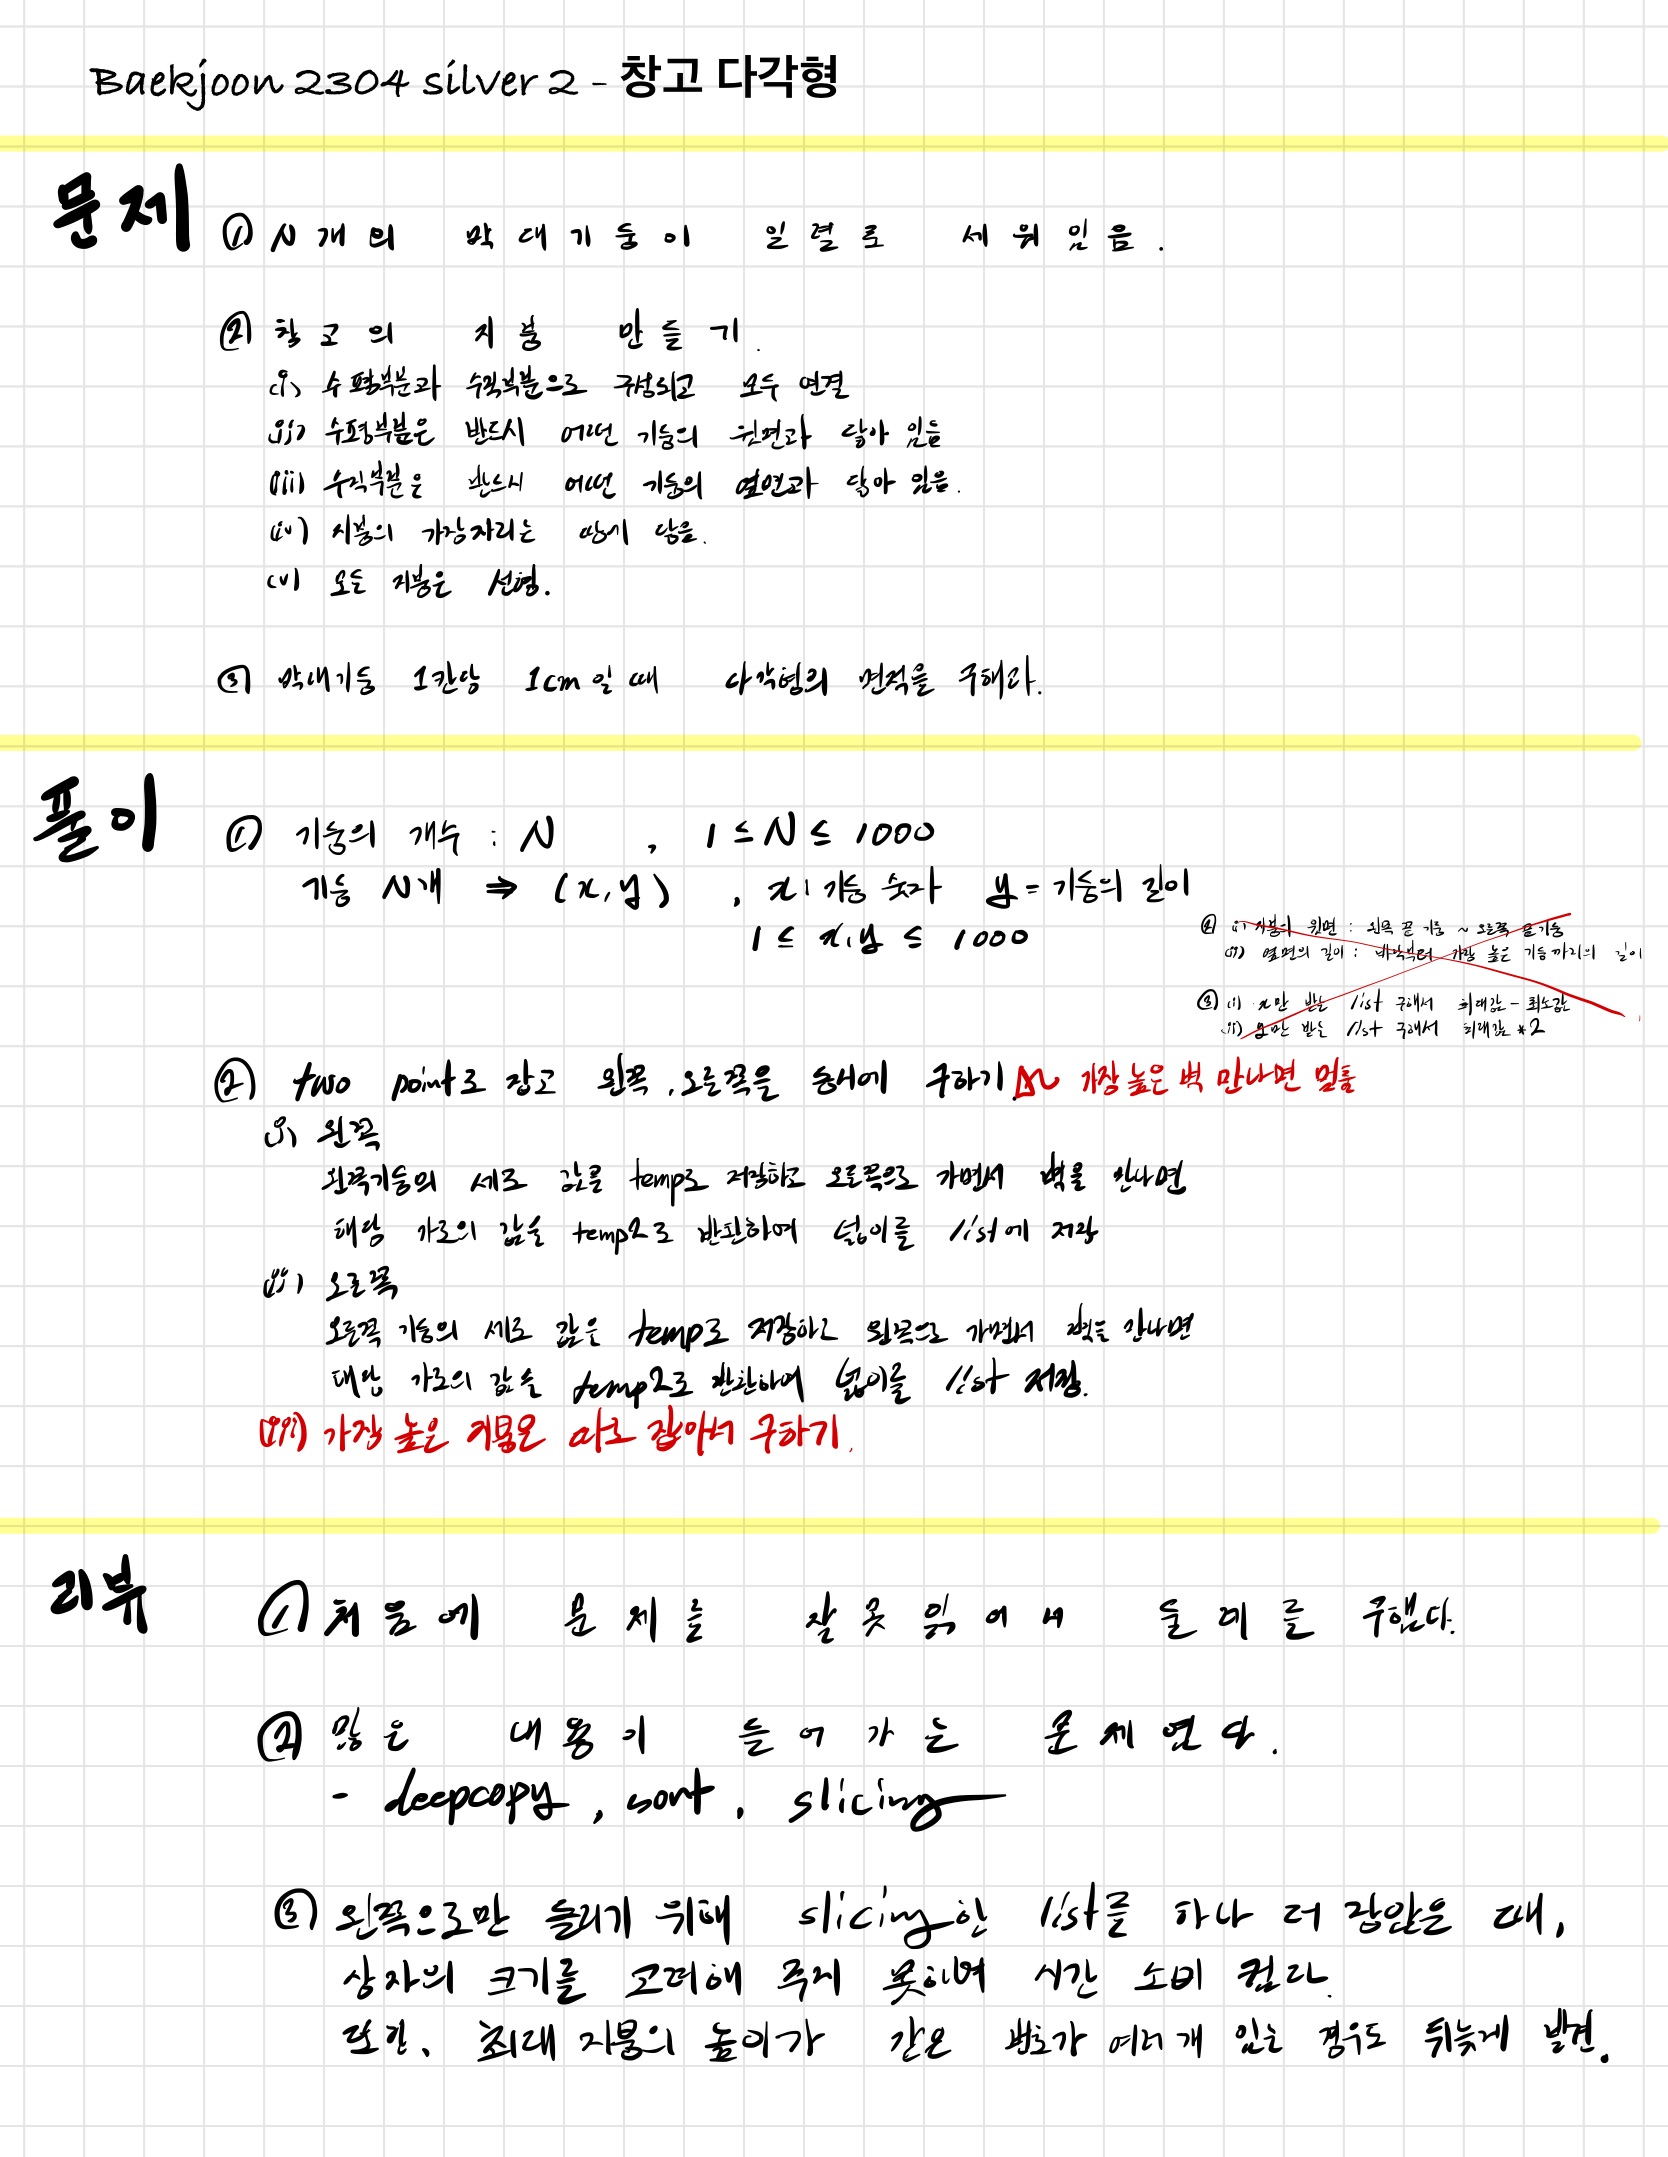 Baekjoon 2304 silver 2 - 창고 다각형
문제
① N개의 막대기둥이 일렬로 세워있음.
② 창고의 지붕 만들기.
(i) 수평부분과 수직부분으로 구성되고 모두 연결
(ii) 수평부분은 반드시 어떤 기둥의 윗면과 닿아 있음
(iii) 수직부분은 반드시 어떤 기둥의 옆면과 닿아 있음.
(iv) 지붕의 가장자리는 땅에 닿음.
(v) 모든 지붕은 선형.
③ 막대기둥 1칸당 1cm일 때 다각형의 면적을 구해라.
풀이
① 기둥의 개수 : N , 1 ≤ N ≤ 1000
기둥 N개 ⇒ (x, y) , x : 기둥 숫자 y = 기둥의 길이
1 ≤ x, y ≤ 1000
② (i) 지붕의 윗면 : 왼쪽 끝 기둥 ~ 오른쪽 끝 기둥
(ii) 옆면의 길이 : 바닥부터 가장 높은 기둥까지의 길이
③ (i) x만 받는 list 구해서 최대값 - 최소값
(ii) y만 받는 list 구해서 최대값 * 2
② two point로 잡고 왼쪽, 오른쪽을 동시에 구하기 가장 높은 벽 만나면 멈춤
(i) 왼쪽
왼쪽기둥의 세로 값을 temp로 저장하고 오른쪽으로 가면서 벽을 만나면
해당 가로의 값을 temp2로 반환하여 넓이를 list에 저장
(ii) 오른쪽
오른쪽 기둥의 세로 값은 temp로 저장하고 왼쪽으로 가면서 벽을 만나면
해당 가로의 값을 temp2로 반환하여 넓이를 list 저장.
(iii) 가장 높은 지붕은 따로 잡아서 구하기.
리뷰
① 처음에 문제를 잘못 읽어서 둘레를 구했다.
② 많은 내용이 들어가는 문제였다.
- deepcopy, sort, slicing
③ 왼쪽으로만 돌리기 위해 slicing한 list를 하나 더 잡았을 때,
상자의 크기를 고려해 주지 못하여 시간 소비 컸다.
또한, 최대 지붕의 높이가 같은 번호가 여러개 있는 경우도 뒤늦게 발견.